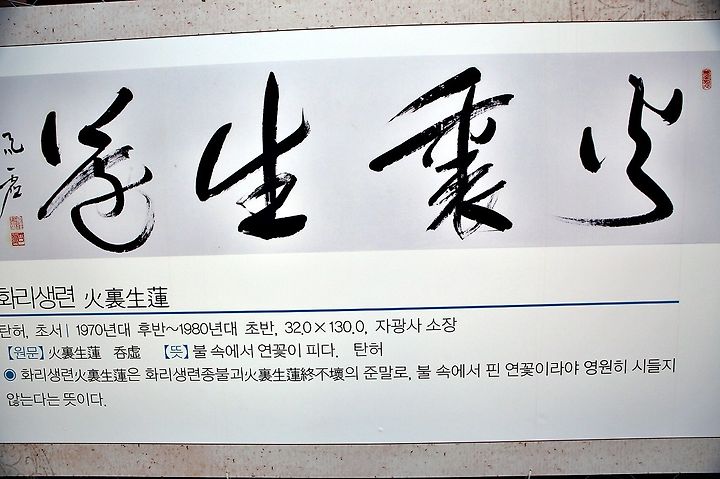 火裏生蓮
呑虛
화리생련 火裏生蓮
탄허, 초서 | 1970년대 후반~1980년대 초반, 32.0×130.0, 자광사 소장
【원문】火裏生蓮 呑虛 【뜻】불 속에서 연꽃이 피다. 탄허
◉ 화리생련火裏生蓮은 화리생련종불괴火裏生蓮終不壞의 준말로, 불 속에서 핀 연꽃이라야 영원히 시들지
않는다는 뜻이다.